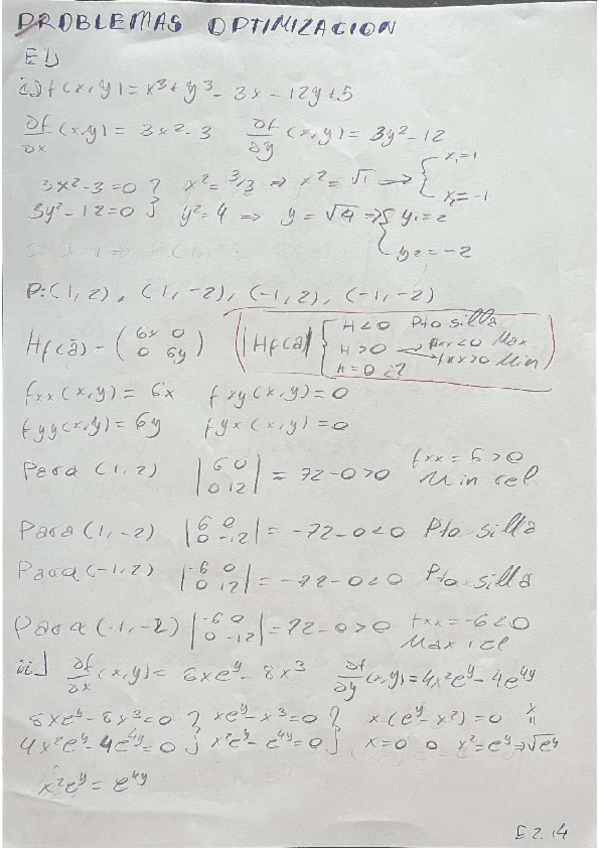 PROBLEMAS OPTIMIZACION
E1)
i) f(x,y) = x³ + y³ - 3x - 12y + 5
∂f/∂x (x,y) = 3x² - 3   ∂f/∂y (x,y) = 3y² - 12
3x² - 3 = 0 } x² = 3/3 => x² = √1 => { x₁ = 1
x₂ = -1
3y² - 12 = 0 } y² = 4 => y = √4 => { y₁ = 2
y₂ = -2
P: (1,2), (1,-2), (-1,2), (-1,-2)
Hf(ā) = (6x 0
0 6y)
|Hf(a)| { H<0 Pto silla
H>0 → fxx<0 Max
→ fxx>0 Min
H=0 ¿?
fxx(x,y) = 6x   fxy(x,y) = 0
fyy(x,y) = 6y   fyx(x,y) = 0
Para (1,2) |6 0
0 12| = 72-0>0   fxx = 6>0
Min rel
Para (1,-2) |6 0
0 -12| = -72-0<0 Pto silla
Para (-1,2) |-6 0
0 12| = -72-0<0 Pto silla
Para (-1,-2) |-6 0
0 -12| = 72-0>0   fxx = -6<0
Max rel
ii) ∂f/∂x (x,y) = 8xe^y - 8x³   ∂f/∂y (x,y) = 4x²e^y - 4e^4y
8xe^y - 8x³ = 0 } xe^y - x³ = 0 } x(e^y - x²) = 0
4x²e^y - 4e^4y = 0 } x²e^y - e^4y = 0 } x = 0 o x² = e^y => √e^y = x
x²e^y = e^4y
E2.14